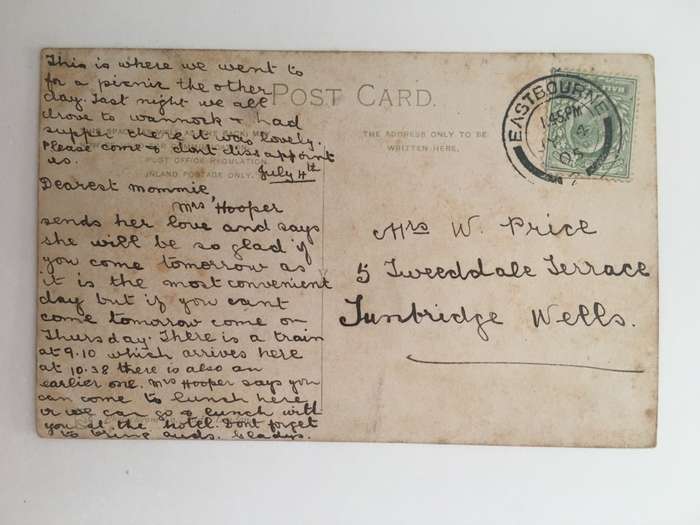 This is where we went to
for a picnic the other
day. Last night we all
drove to Wannock & had
supper there it was lovely.
Please come & dont dissappoint
us.
July 4th
Dearest Mommie
Mrs Hooper
sends her love and says
she will be so glad if
you come tomorrow as
it is the most convenient
day but if you cant
come tomorrow come on
Thursday. There is a train
at 9.10 which arrives here
at 10.38 there is also an
earlier one. Mrs Hooper says you
can come to lunch here
or we can go & lunch with
you at the hotel. Dont forget
to bring Gladys.
POST CARD.
POST OFFICE REGULATION.
INLAND POSTAGE ONLY.
THE ADDRESS ONLY TO BE
WRITTEN HERE.
EASTBOURNE
1.45 PM
4
05
Mrs W. Price
5 Tweeddale Terrace
Tunbridge Wells.